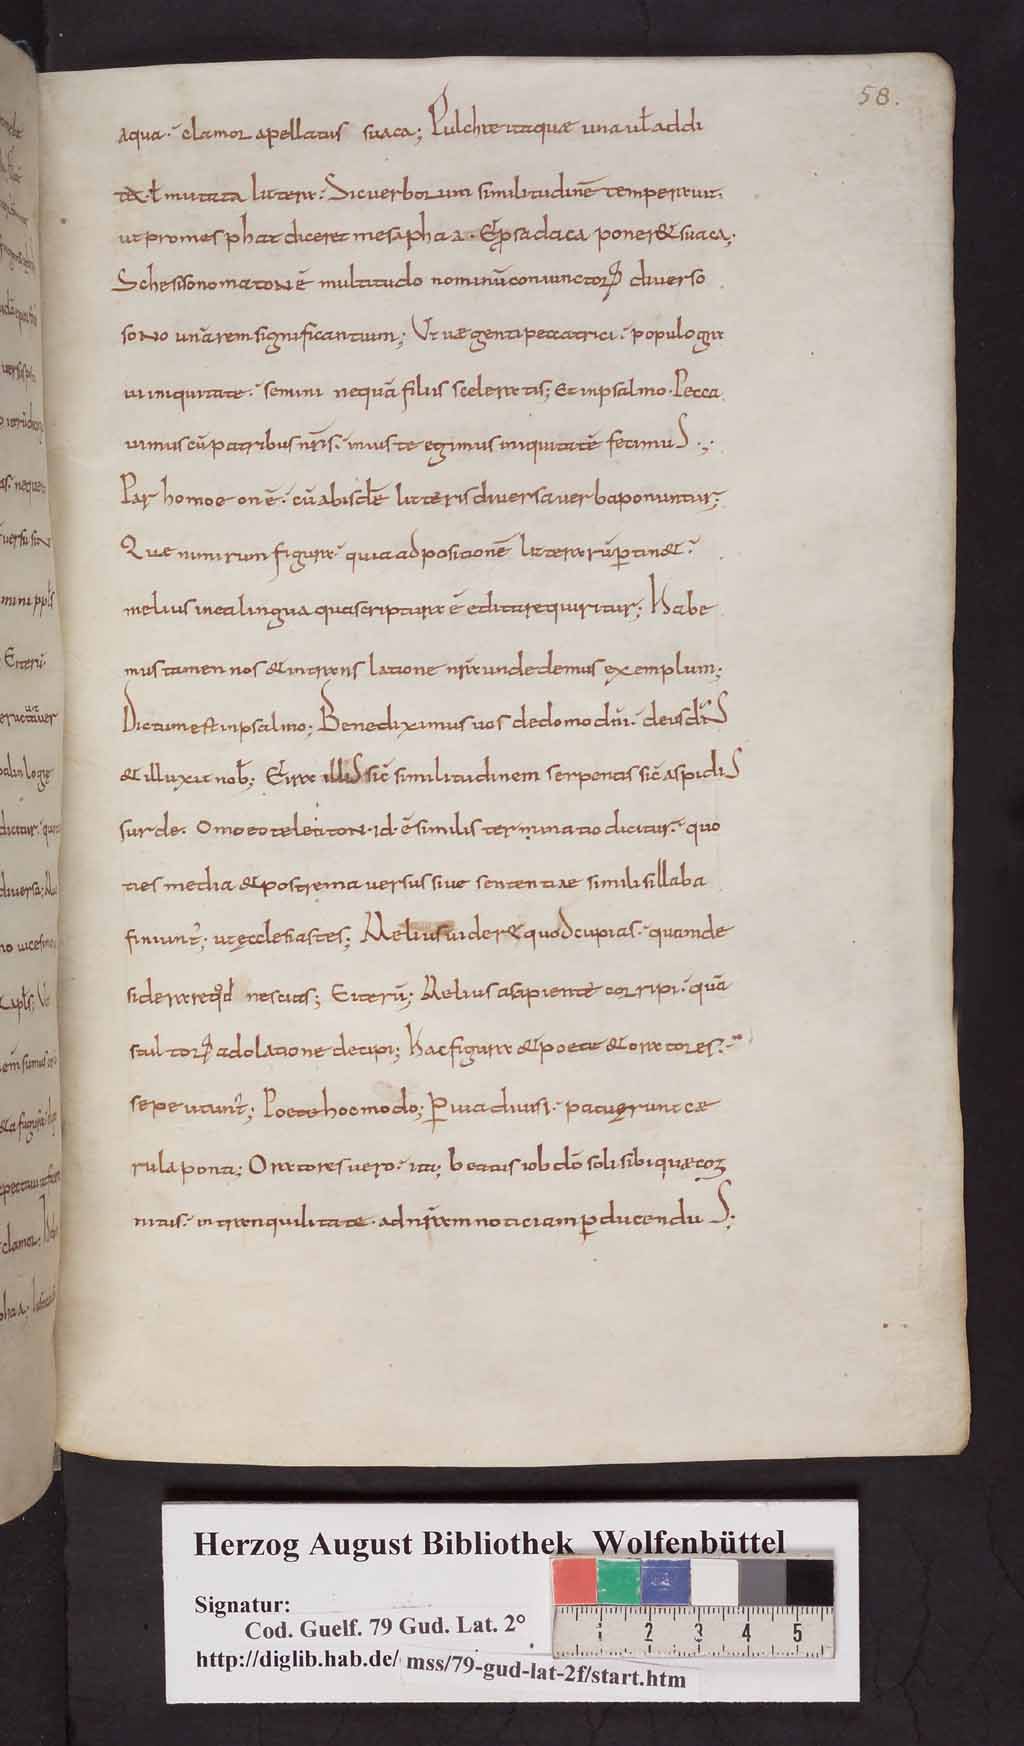 58.
aqua · clamor apellatus suaca; Pulchre itaque una uł addi
ta · ł mutata littera · Sic uerborum similitudinē temperauit ·
ut pro mesphat diceret mesaphaa · & p sadaca poner& suaca ;
Schesisonomaton ē multitudo nominū coniunctoꝝ diuerso
sono unā rem significantium ; Ut uae genti peccatrici · populo gra
ui iniquitate · semini nequā filiis sceleratis ; Et in psalmo · Pecca
uimus cū patribus nr̄is · iniuste egimus iniquitatē fecimuS ·,·
Par homoeon ē · cū ab isdē litteris diuersa uerba ponuntur ;
Quae nimirum figura · quia ad positionē litterarū ꝑtin& ·
melius in ea lingua qua scriptura ē edita requiritur ; Habe
mus tamen nos & in translatione nr̄a unde demus exemplum ;
Dictum est in psalmo ; Benediximus uos de domo dn̄i · deus dn̄S
& illuxit nob̄ ; Et ira illiS sic̄ similitudinem serpentis sic̄ aspidiS
surde · Omoeoteleuton · id · ē similis terminatio dicitur · quo
ties media & postrema uersus siue sententiae simili sillaba
finiunt̄ ; ut ecclesiastes ; Melius uider& quod cupias · quam de
siderare qd̄ nescias ; Et iterū ; Melius a sapiente corripi · quā
stultoꝝ adolatione decipi ; Hac figura & poetae & oratores ·
sepe utunt̄ ; Poete hoc modo ; ꝑuia diuisi · patuerunt cae
rula ponti ; Oratores uero · ita ; beatus iob dō soli sibi quae cog
nitus · in tranquilitate · ad nr̄am noticiam ꝑducenduS ;
Herzog August Bibliothek Wolfenbüttel
Signatur:
Cod. Guelf. 79 Gud. Lat. 2°
http://diglib.hab.de/ mss/79-gud-lat-2f/start.htm
1 2 3 4 5